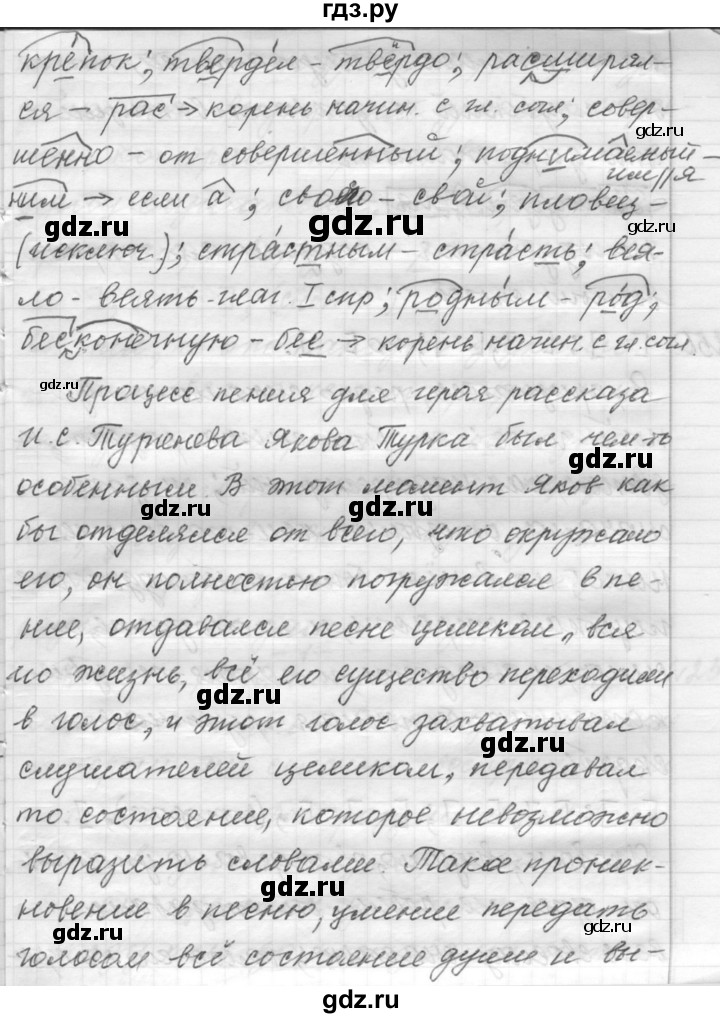 гдз.ру
крепок; твердел - твёрдо; расширял-
ся - рас → корень начин. с гл. согл; совер-
шенно - от совершенный; поднимаемый -
им//я
ним → если а; свою - свой; пловец -
(исключ.); страстным - страсть; вея-
ло - веять - глаг. I спр; родным - род;
бесконечную - бес → корень начин. с гл. согл.
Процесс пения для героя рассказа
И. С. Тургенева Якова Турка был чем-то
особенным. В этот момент Яков как
бы отделялся от всего, что окружало
его, он полностью погружался в пе-
ние, отдавался песне целиком, вся
его жизнь, всё его существо переходили
в голос, и этот голос захватывал
слушателей целиком, передавал
то состояние, которое невозможно
выразить словами. Такое проник-
новение в песню, умение передать
голосом всё состояние души и вы-
gdz.ru